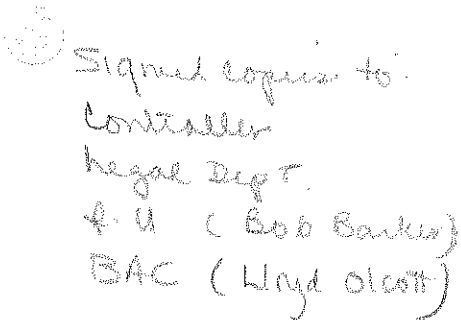 Signed copies to
Controller
Legal Dept.
(Bob Barker)
BAC (Lloyd Olcott)